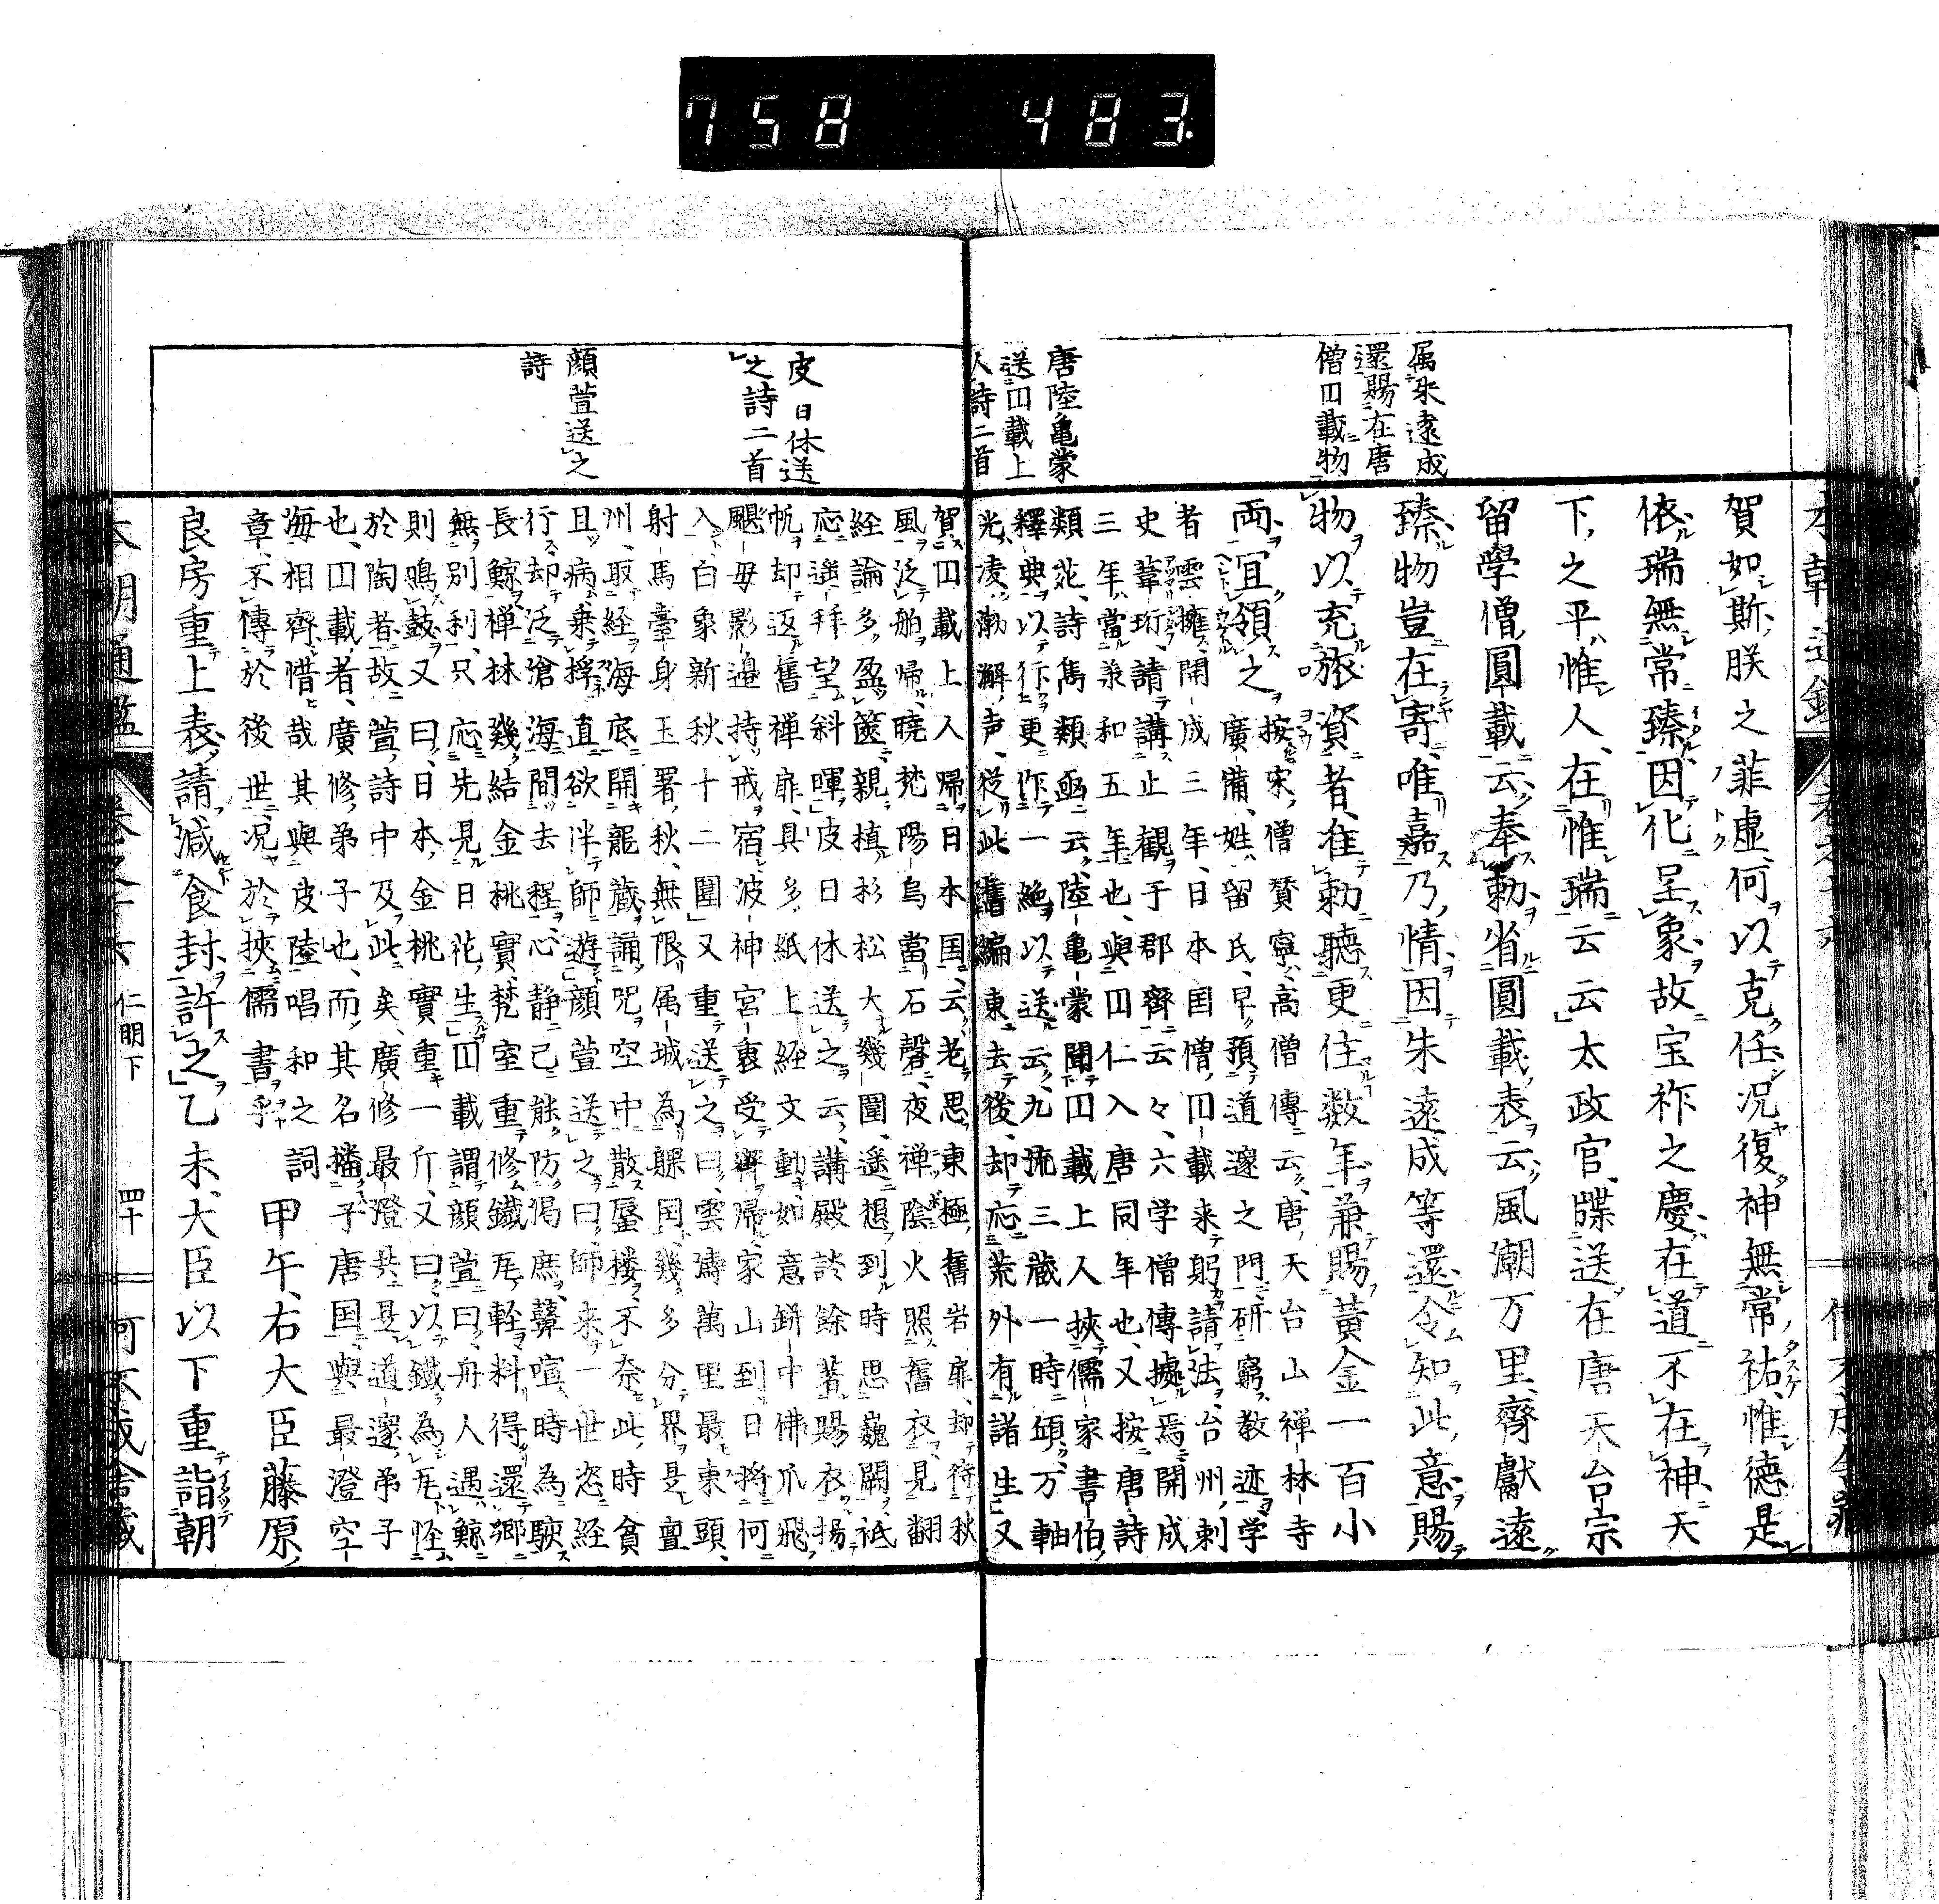 758 483
属朱遠成
還賜在唐
僧円載物
唐陸亀蒙
送円載上
人詩二首
賀如斯朕之菲虚何以克任况復神無常祐惟徳是
依瑞無常臻因化呈象故宝祚之慶在道不在神天
下之平惟人在惟瑞云云太政官牒送在唐天台宗
留学僧圓載云奉勅省圓載表云風潮万里齎獻遠
臻物豈在寄唯嘉乃情因朱遠成等還令知此意賜
物以充旅資者准勅聽更住数年兼賜黃金一百小
両宜領之 按宋僧賛寧高僧傳云唐天台山禅林寺
廣脩姓留氏早預道邃之門研窮教迹学
者雲擁開成三年日本国僧円載来躬請法台州刺
史韋珩請講止觀于郡齊云々六学僧傳據焉開成
三年當承和五年也與円仁入唐同年也又按唐詩
類苑詩雋類函云陸亀蒙聞円載上人挾儒家書伯
釋典以行更作一絶以送云九流三蔵一時傾万軸
光凌渤澥声従此舊編東去後却応荒外有諸生又
皮日休送
之詩二首
顔萱送之
詩
賀円載上人歸日本国云老思東極舊岩扉却待秋
風泛舶歸曉梵陽烏當石磬夜禅陰火照舊衣見翻
経論多盈篋親植杉松大幾圍遥想到時思巍闕祗
応遥拜望斜暉皮日休送之云講殿談餘著賜衣揚
帆却返舊禅扉具多紙上経文動如意缾中佛爪飛
颶毋影邉持戒宿波神宮裏受齋帰家山到日將何
入白象新秋十二圍又重送之曰雲濤萬里最東頭
射馬臺身玉署秋無限属城為躶国幾多分界是亶
州取経海底開龍蔵誦咒空中散蜃楼不奈此時貧
且病乗桴直欲泮師遊顔萱送之曰師来一世恣経
行却泛滄海間去程心静已能防偈庶聾喧時為駛
長鯨禅林幾結金桃實梵室重修鐵瓦軽料得還郷
無別利只応先見日花生円載謂顔萱曰舟人遇鯨
則鳴鼓又曰日本金桃實重一斤又曰以鐵為瓦怪
於陶者故萱詩中及此矣廣修最澄共是道邃弟子
也円載者廣修弟子也而其名播于唐国與最澄空
海相齊惜哉其與皮陸唱和之詞
章不傳於後世况於挾儒書乎 甲午右大臣藤原
良房重上表請減食封許之乙未大臣以下重詣朝
仁明下
四十